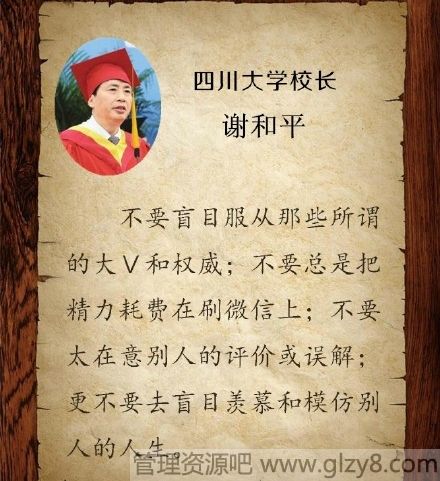 四川大学校长
谢和平
不要盲目服从那些所谓
的大V和权威；不要总是把
精力耗费在刷微信上；不要
太在意别人的评价或误解；
更不要去盲目羡慕和模仿别
人的人生。
管理资源吧 www.glzy8.com